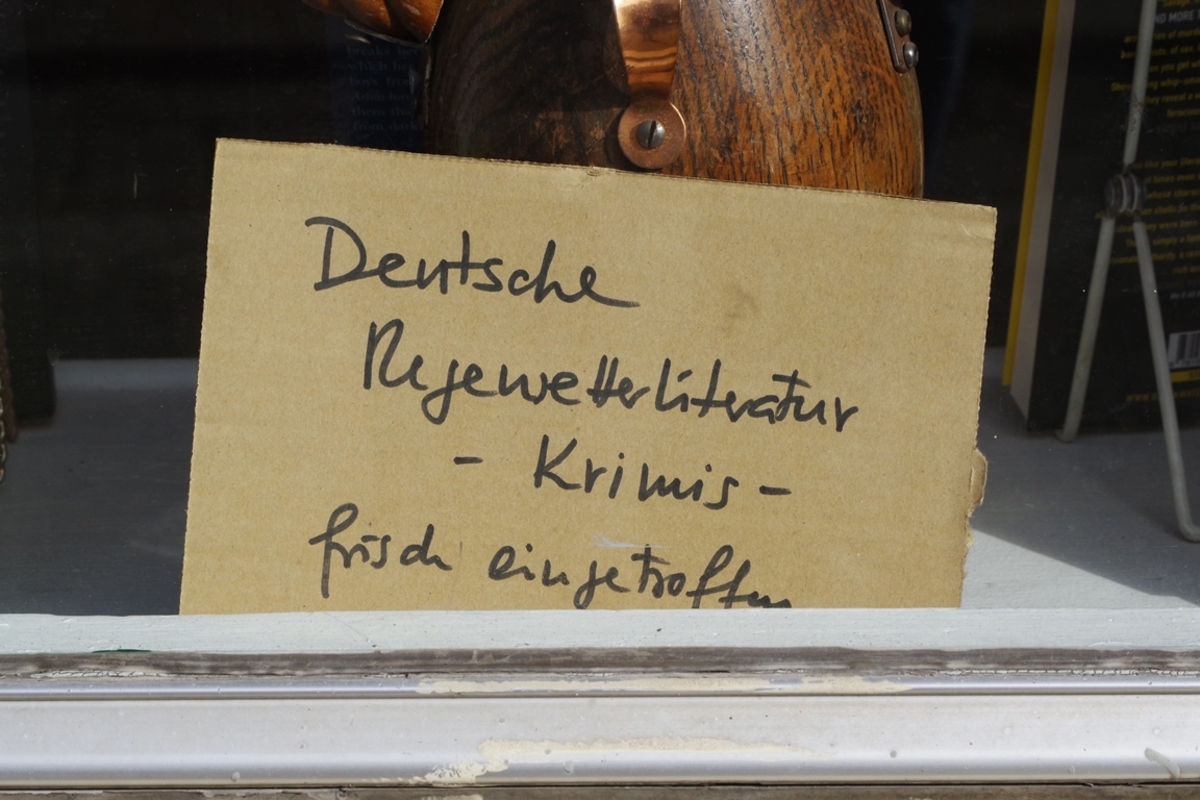 Deutsche
Regewetterliteratur
- Krimis -
frisch eingetroffen